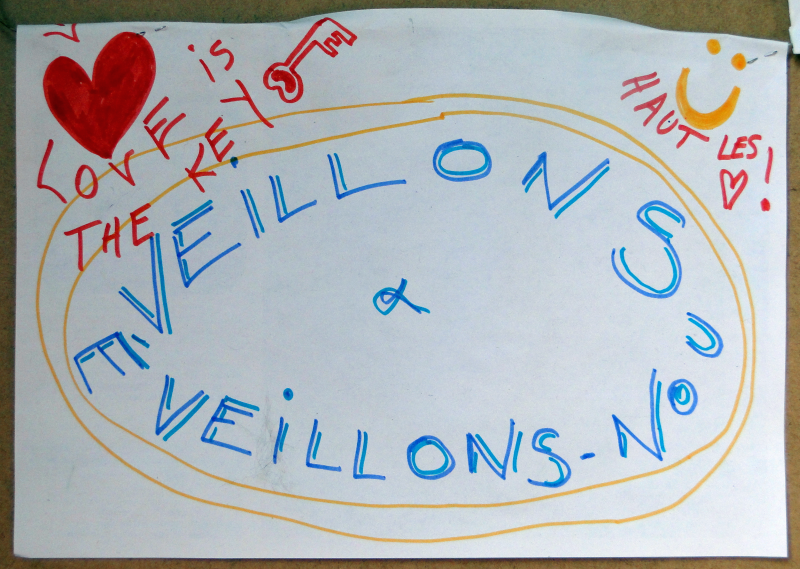 LOVE is
THE KEY
HAUT LES
♡!
ÉVEiLLONS
&
VEiLLONS-NoU